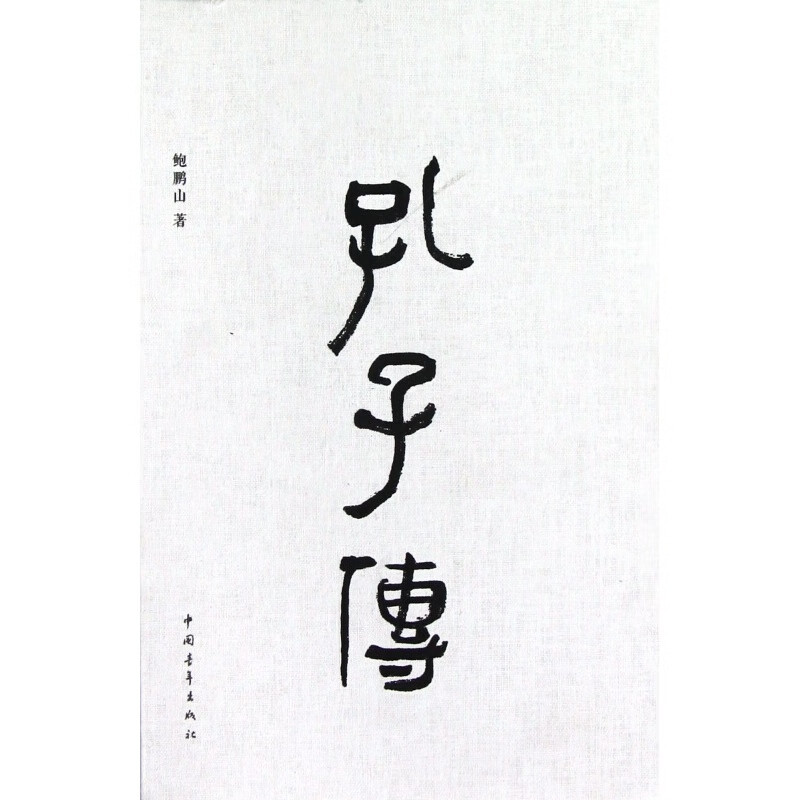 孔子傳
鲍鹏山 著
中国青年出版社